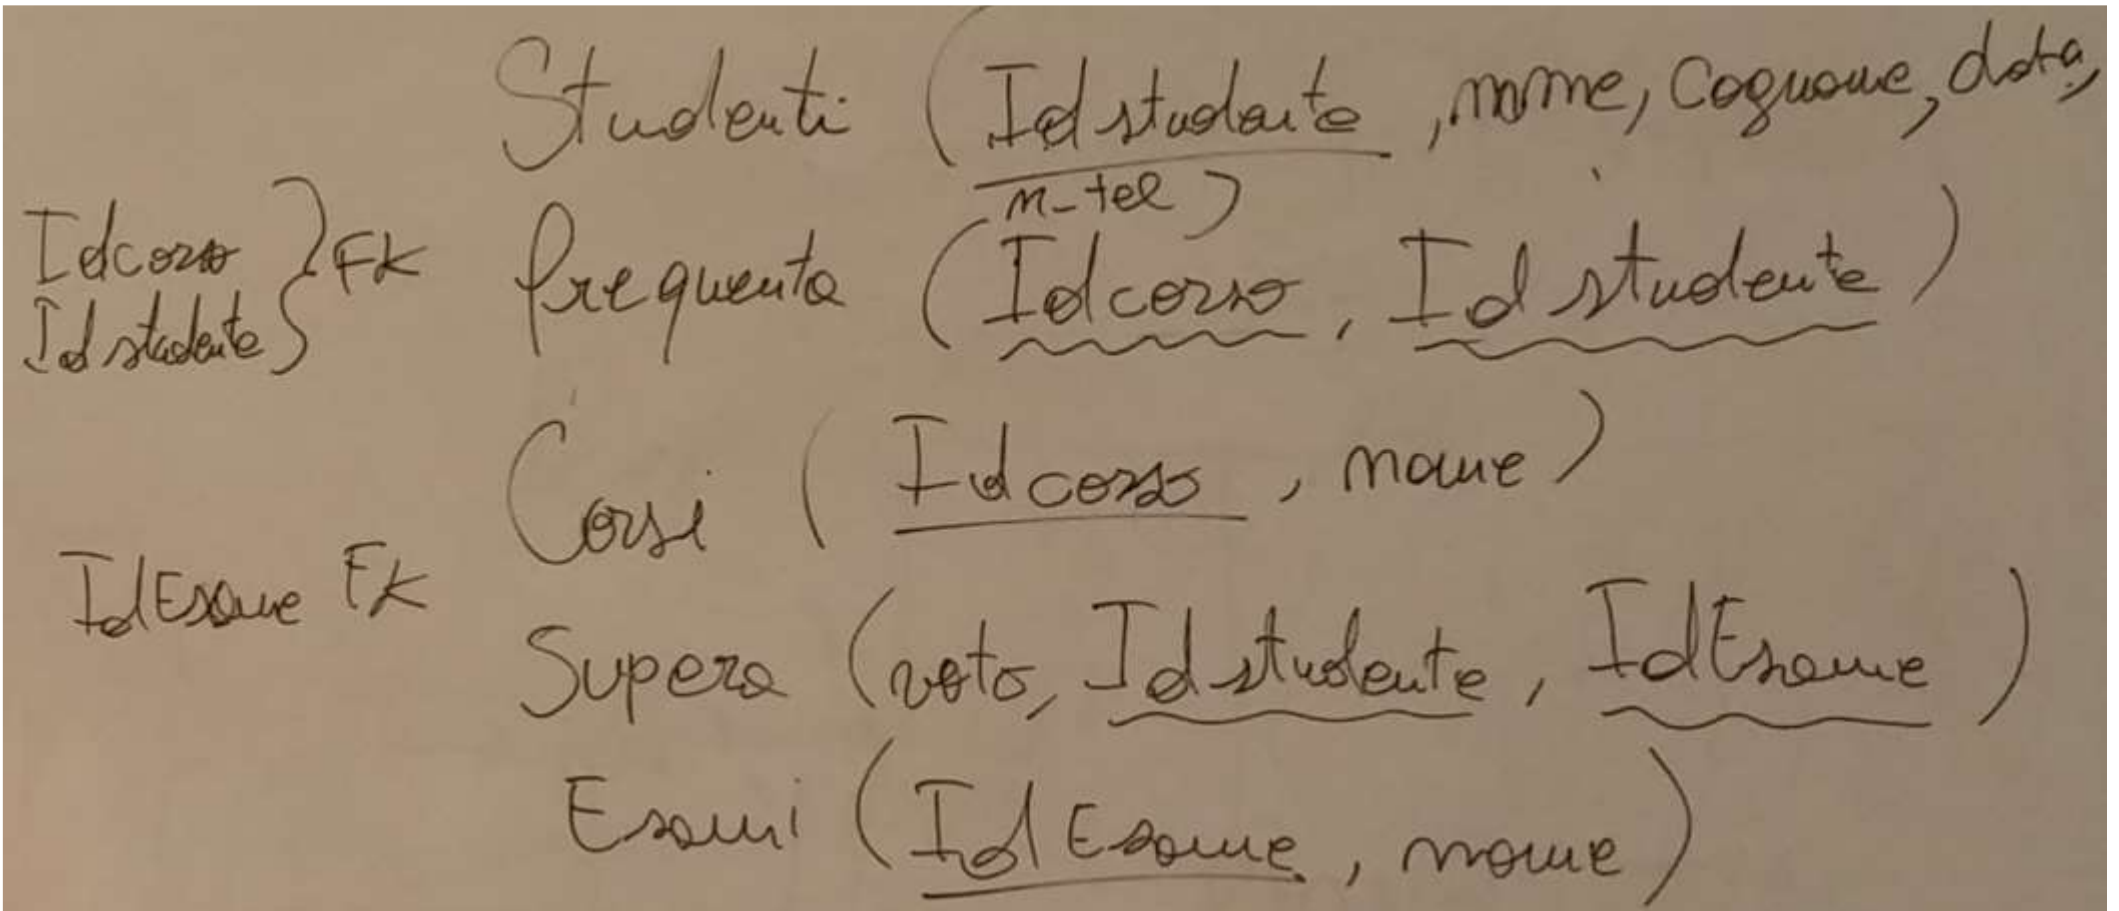 Studenti (Idstudente, nome, Cognome, data,
n-tel)
Idcorso } FK frequenta (Idcorso, Idstudente)
Idstudente
Corsi (Idcorso, nome)
IdEsame FK
Supera (voto, Idstudente, IdEsame)
Esami (IdEsame, nome)